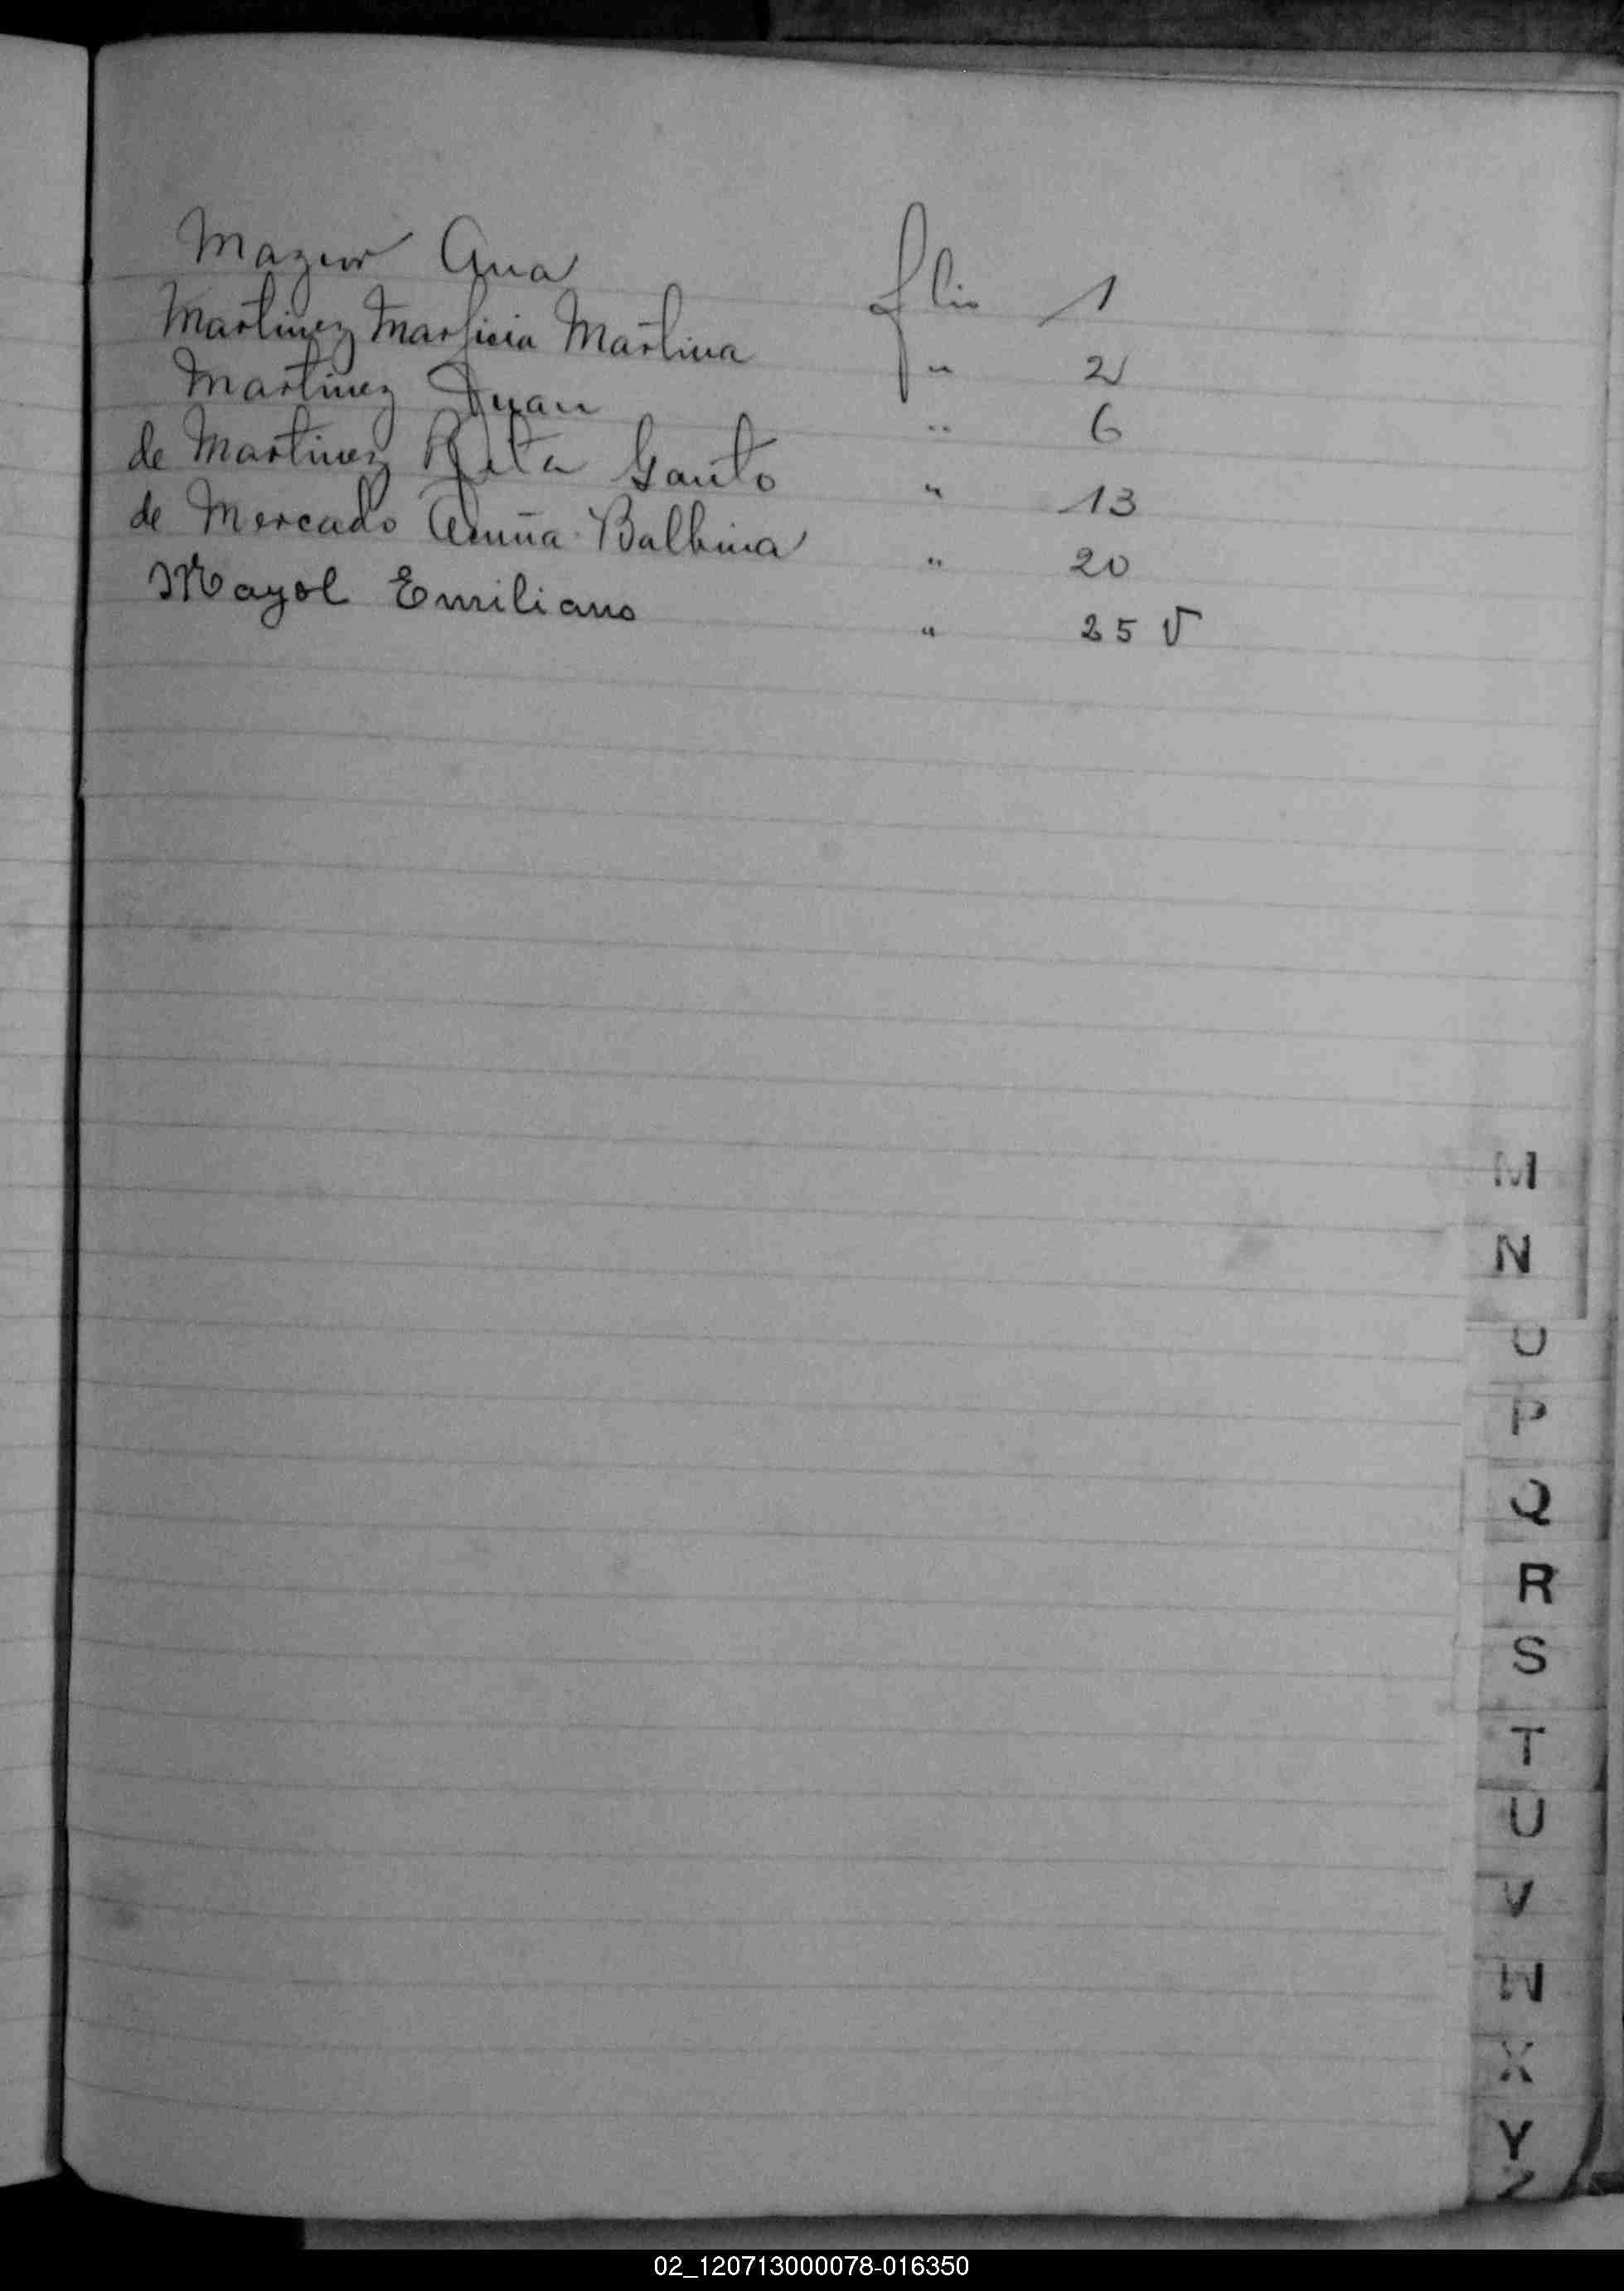 Mazur Ana flio 1
Martinez Marficia Martina " 2
Martinez Juan " 6
de Martinez Rita Santo " 13
de Mercado Acuña Balbina " 20
Mayol Emiliano " 25 V
M
N
O
P
Q
R
S
T
U
V
W
X
Y
Z
02_120713000078-016350